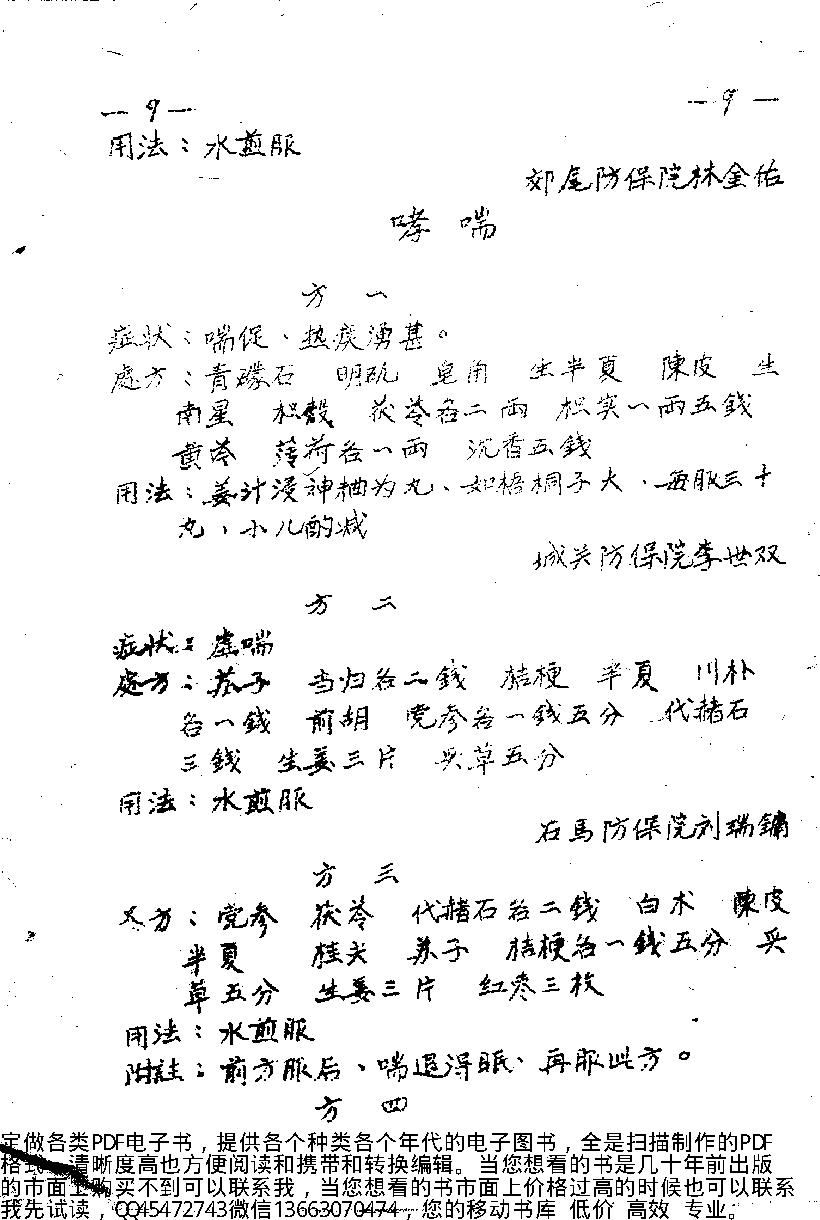 — 9 —
— 9 —
用法：水煎服
郊尾防保院林金佑
哮喘
方一
症状：喘促、热痰湧甚。
處方：青礞石 明矾 皂角 生半夏 陳皮 生
南星 枳殼 茯苓各二兩 枳实一兩五錢
黄芩 薄荷各一兩 沉香五錢
用法：姜汁浸神粬为丸、如梧桐子大、每服三十
丸，小儿酌减
城关防保院李世双
方二
症状：虚喘
處方：苏子 当归各二錢 桔梗 半夏 川朴
各一錢 前胡 党参各一錢五分 代赭石
三錢 生姜三片 炙草五分
用法：水煎服
石馬防保院刘瑞鏞
方三
又方：党参 茯苓 代赭石各二錢 白术 陳皮
半夏 桂尖 苏子 桔梗各一錢五分 炙
草五分 生姜三片 红枣三枚
用法：水煎服
附註：前方服后、喘退得眠、再服此方。
方四
定做各类PDF电子书，提供各个种类各个年代的电子图书，全是扫描制作的PDF
格式，清晰度高也方便阅读和携带和转换编辑。当您想看的书是几十年前出版
的市面上购买不到可以联系我，当您想看的书市面上价格过高的时候也可以联系
我先试读，QQ45472743微信13663070474，您的移动书库 低价 高效 专业。